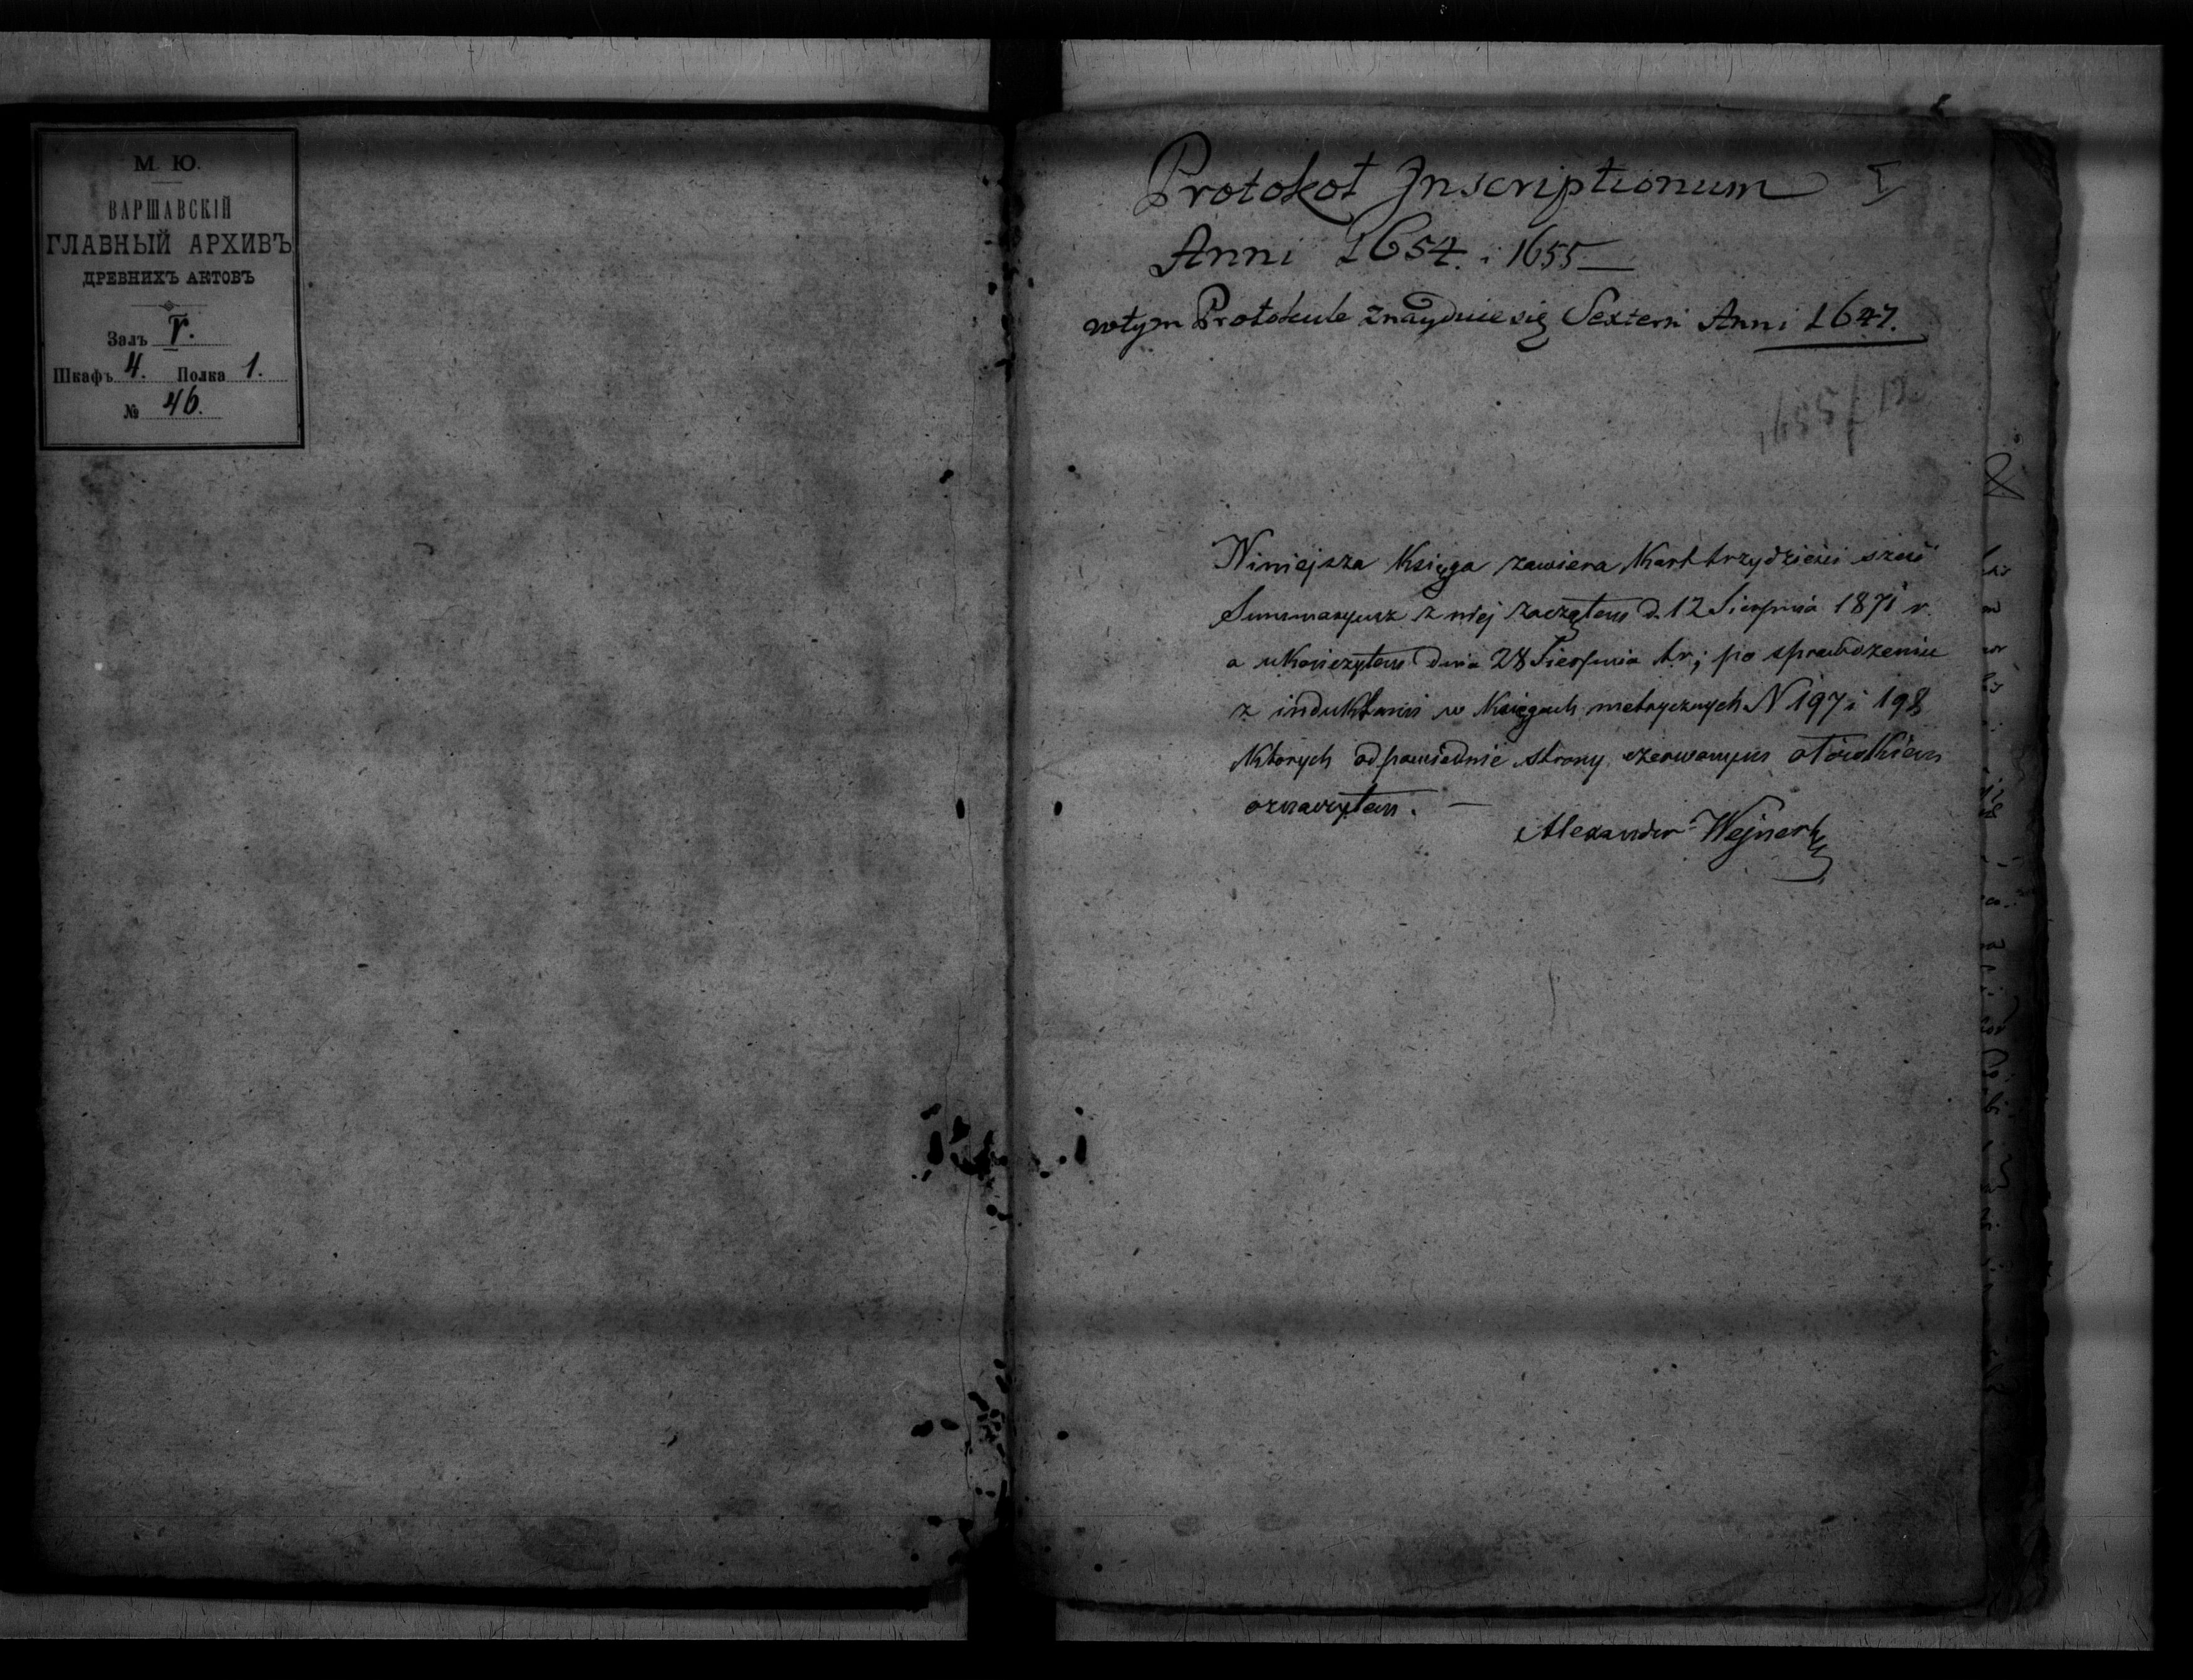 М. Ю.
ВАРШАВСКІЙ
ГЛАВНЫЙ АРХИВЪ
ДРЕВНИХЪ АКТОВЪ
Залъ V.
Шкафъ 4. Полка 1.
№ 46.
Protokoł Inscriptionum I
Anni 1654. i 1655
w tym Protokule znayduie się Sextern Anni 1647.
Niniejsza Księga zawiera Kart trzydzieści sześć
Summaryusz z niej zacząłem d. 12 Sierpnia 1871 r.
a ukończyłem dnia 28 Sierpnia t.r; po sprawdzeniu
z induktami w Księgach metrycznych N 197 i 198
których odpowiednie strony czerwonym ołówkiem
oznaczyłem. —
Alexander Wejnert